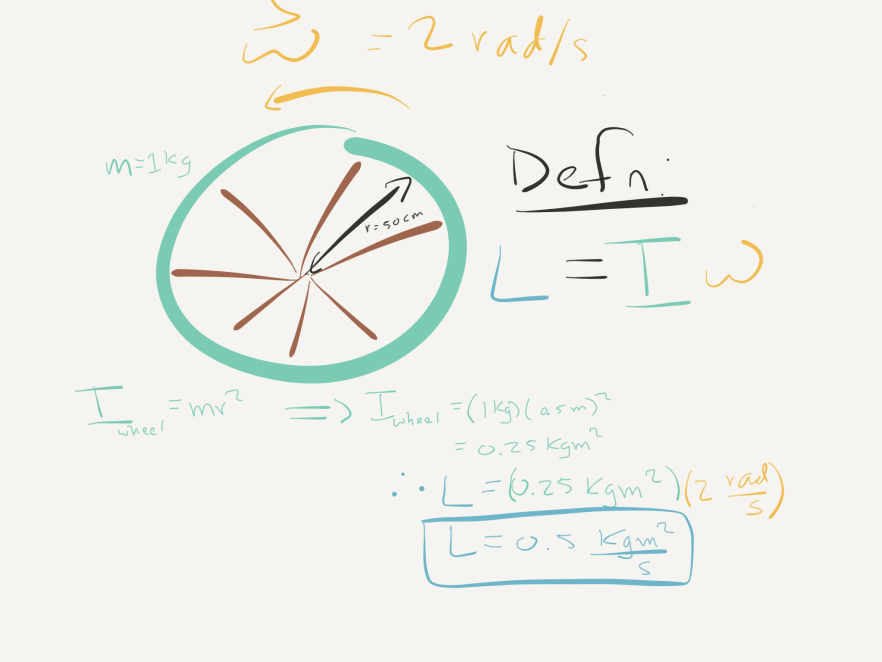 ω⃗ = 2 rad/s
m=1kg
r=50cm
Defn:
L = I ω
I wheel = mr² ⟹ I wheel = (1kg)(0.5m)²
= 0.25 Kgm²
∴ L = (0.25 Kgm²)(2 rad/s)
L = 0.5 Kgm²/s